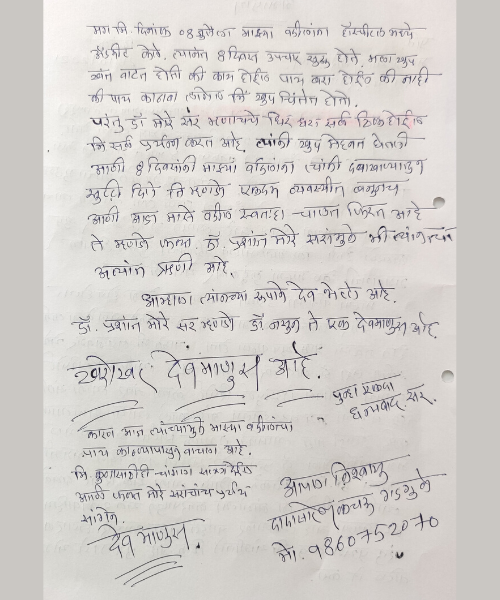 मग मि दिनांक ०8 जुलैला माझ्या वडीलांना हॉस्पीटल मध्ये
ॲडमीट केले. त्यानंतर 8 दिवस उपचार सुरू होते. मला खुप
वाटत होती की काय होईल पाय बरा होईल की नाही
की पाय काढावा लागेल मि खुप चिंतेत होतो.
परंतु डॉ मोरे सर म्हणायचे धिर धरा सर्व ठिक होईल
मि सर्व प्रयत्न करत आहे. त्यांनी खुप मेहनत घेतली
आणी 8 दिवसांनी माझ्या वडीलांना त्यांनी दवाखान्यातुन
सुट्टी दिली ति म्हणजे एकदम व्यवस्थीत करूनच
आणी आता माझे वडील स्वतःहा चालत फिरत आहे
ते म्हणजे फक्त. डॉ. प्रशांत मोरे सरांमुळे मी त्यांचा
अत्यंत ऋणी आहे.
आम्हाला त्यांच्या रूपाने देव भेटले आहे.
डॉ. प्रशांत मोरे सर म्हणजे डॉ नसुन ते एक देवमाणुस आहे.
खरोखर देवमाणुस आहे.
पुन्हा एकदा
धन्यवाद सर.
कारण आज त्यांच्यामुळे माझ्या वडीलांचा
पाय काढण्यापासुन वाचला आहे.
मि कुणालाही सल्ला देईल
आणी फक्त मोरे सरांचाच पर्याय
सांगेन.
देवमाणुस.
आपला विश्वासु
मो. 9860752070